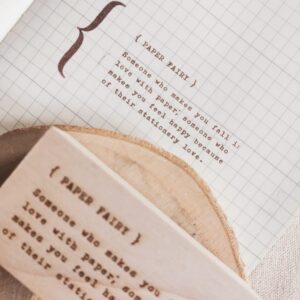 { PAPER FAIRY }
Someone who makes you fall in
love with paper; someone who
makes you feel happy because
of their stationery love.
{ PAPER FAIRY }
Someone who makes you
love with paper; someone
makes you feel happy
of their station